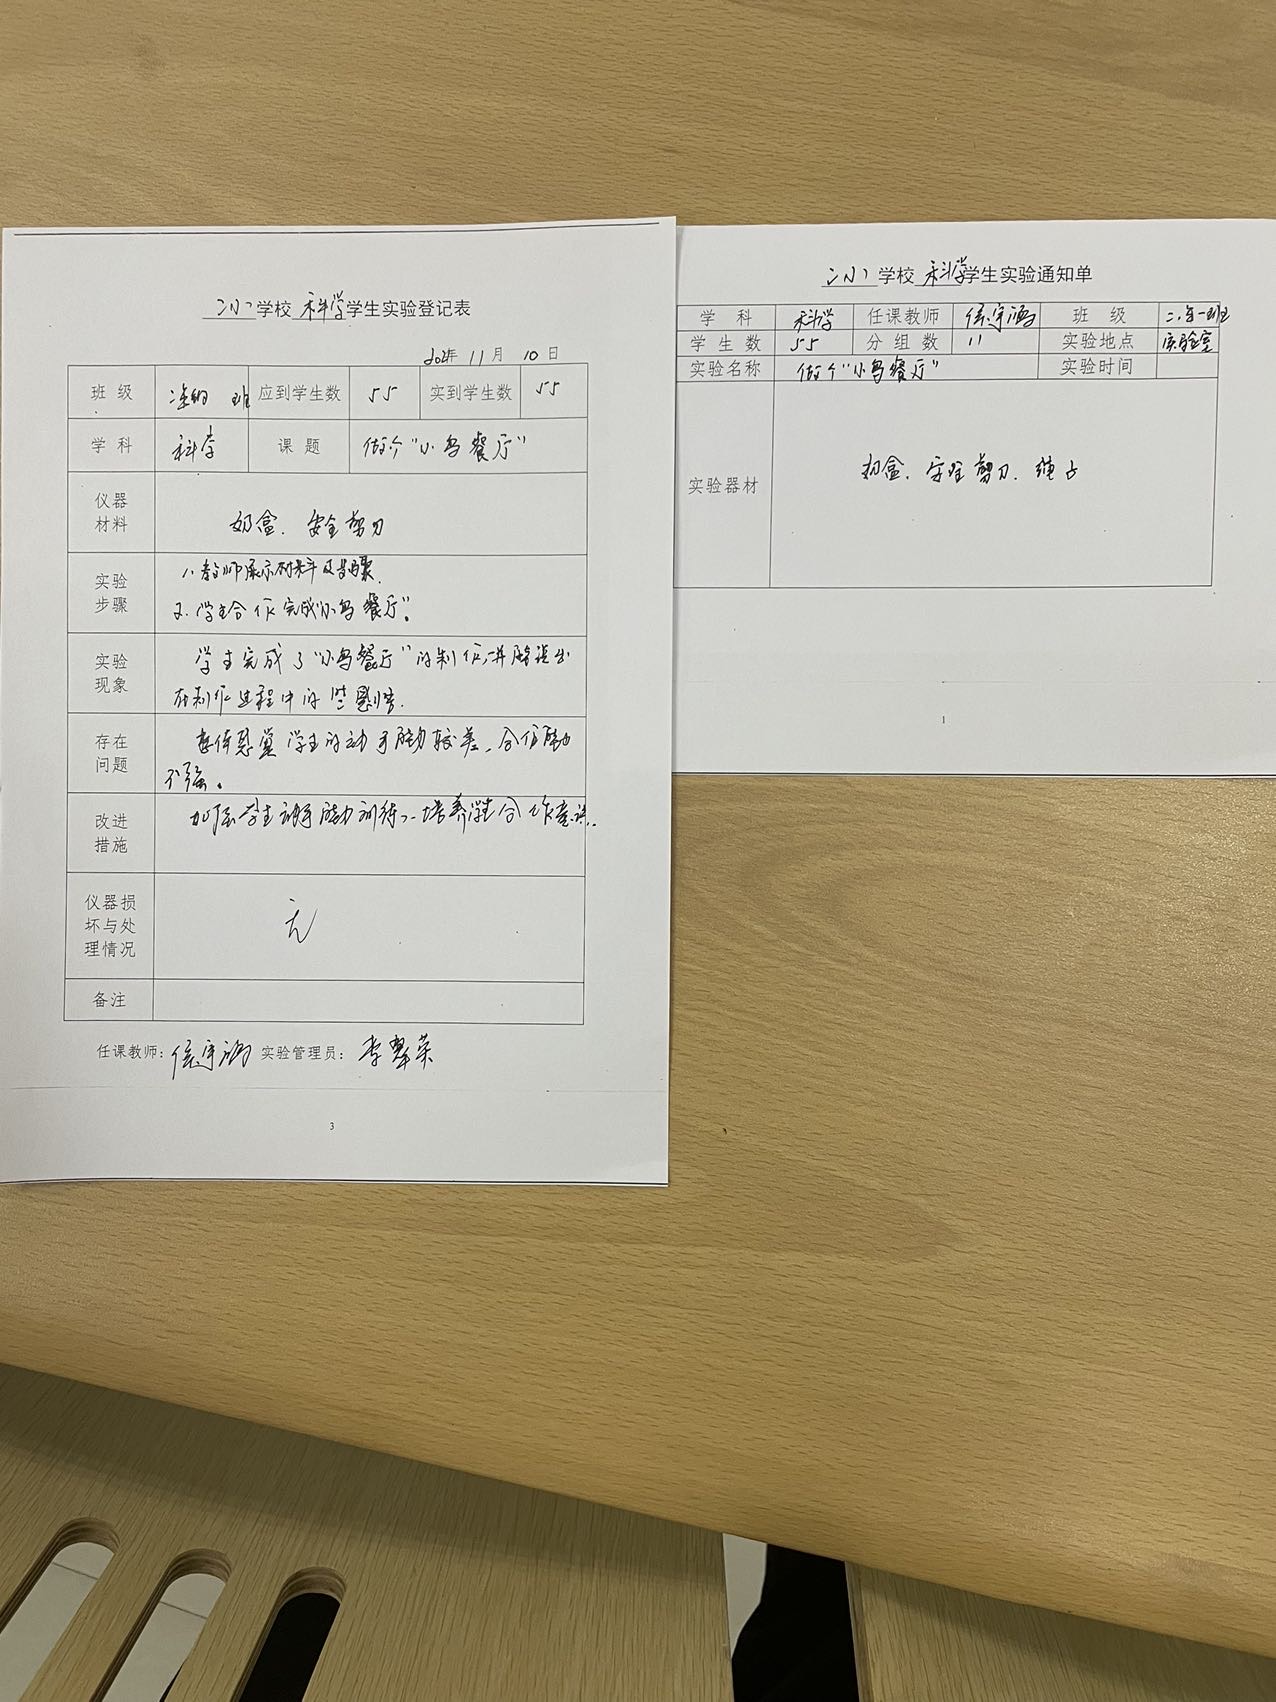 二小学校科学学生实验登记表
11月10日
班级 班 应到学生数 55 实到学生数 55
学科 科学 课题 做个“小鸟餐厅”
仪器材料 奶盒、安全剪刀
实验步骤 1.教师展示材料及步骤.
2.学生合作完成“小鸟餐厅”。
实验现象 学生完成了“小鸟餐厅”的制作,并能说出
在制作过程中的些感悟.
存在问题 学生的动手能力较差,合作能力
不强。
改进措施 加强学生动手能力训练,培养学生合作意识.
仪器损坏与处理情况 无
备注
任课教师:侯宇涵 实验管理员:李翠荣
3
二小学校科学学生实验通知单
学科 科学 任课教师 侯宇涵 班级 二年一班
学生数 55 分组数 11 实验地点 实验室
实验名称 做个“小鸟餐厅” 实验时间
实验器材 奶盒、安全剪刀、
1